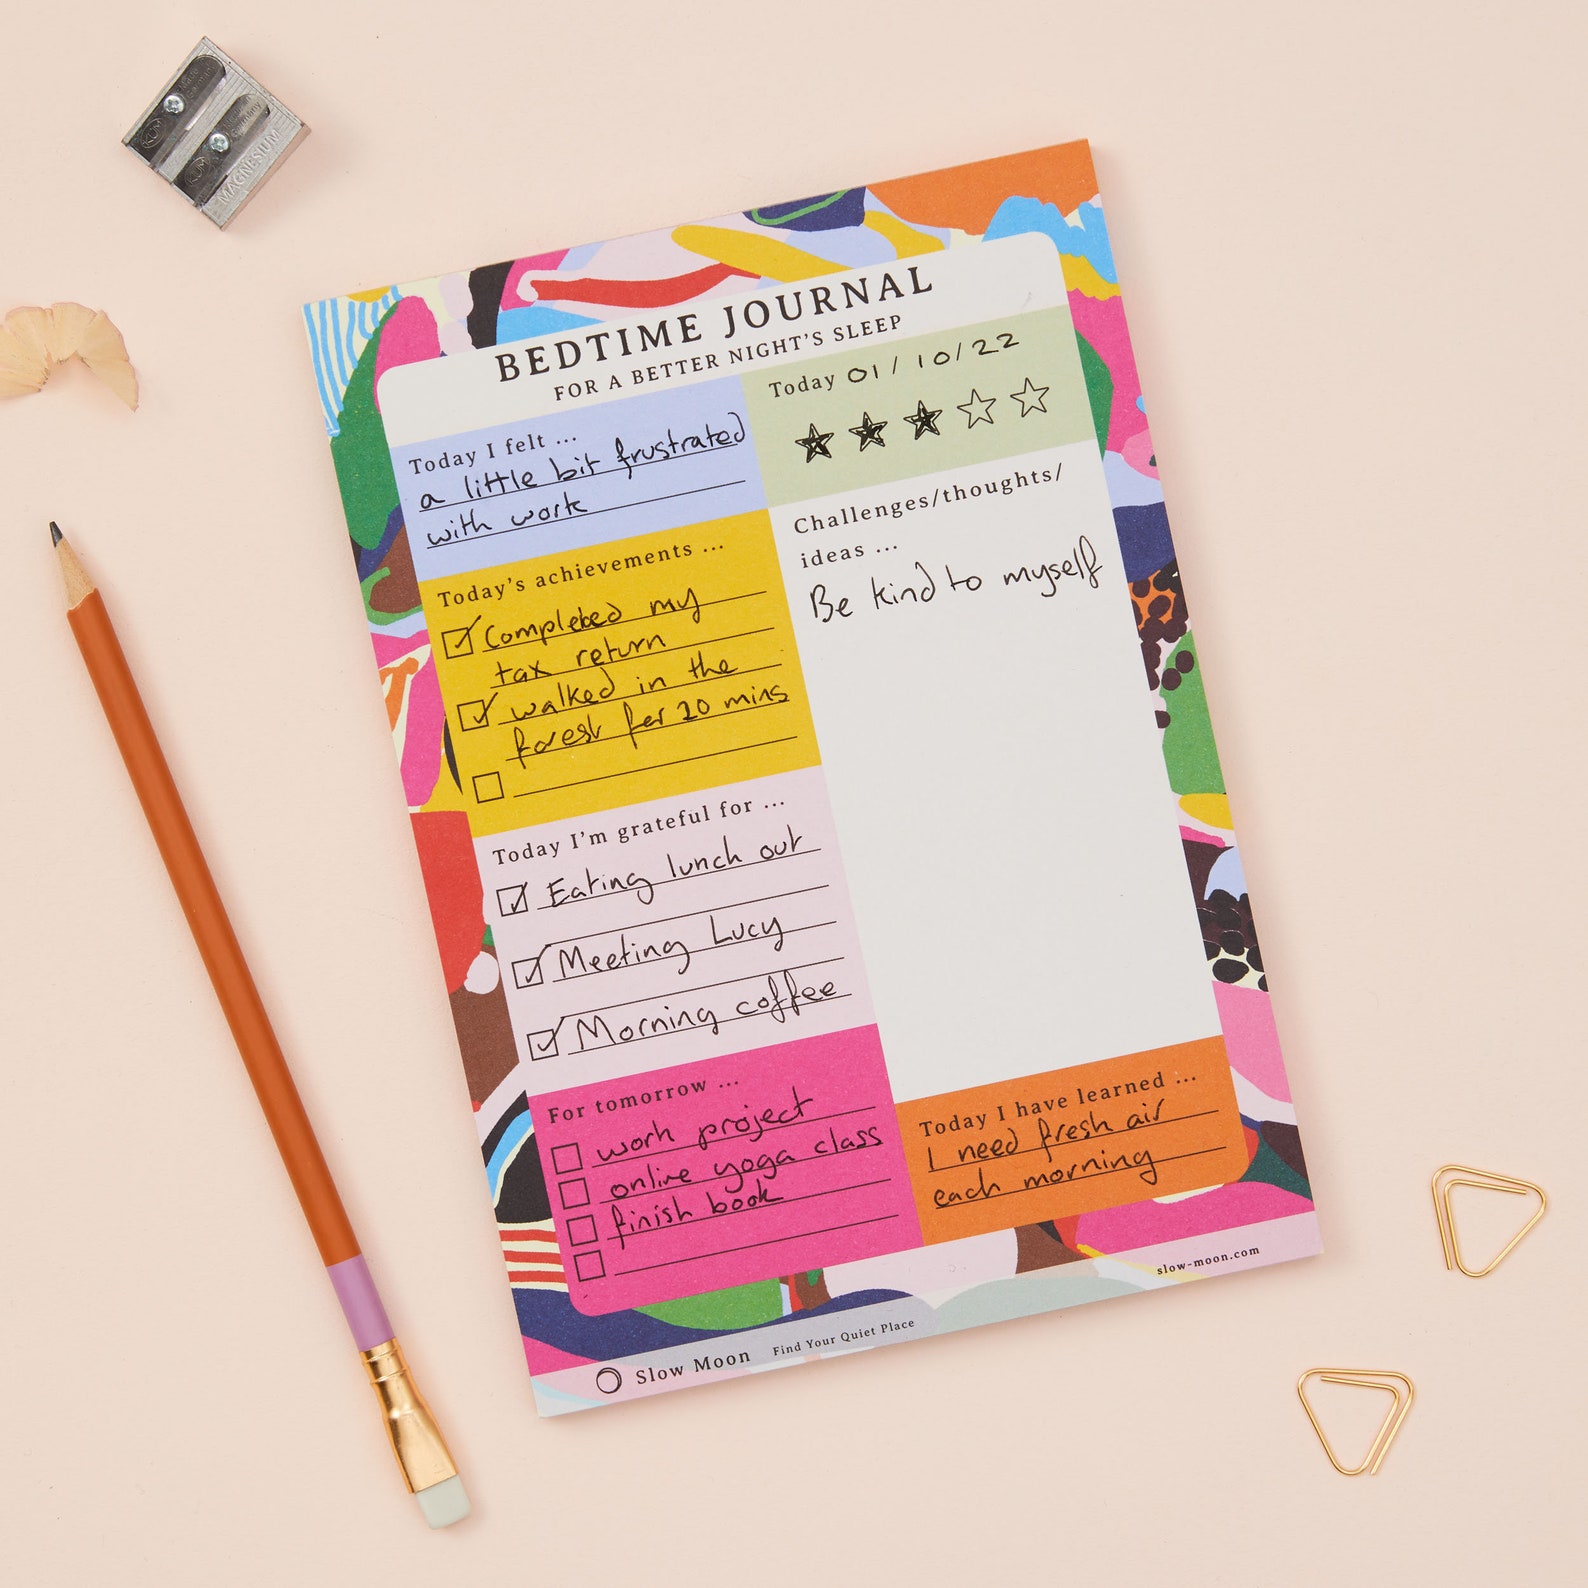 BEDTIME JOURNAL
FOR A BETTER NIGHT'S SLEEP
Today I felt ...
a little bit frustrated
with work
Today 01/10/22
Today's achievements ...
Completed my
tax return
walked in the
forest for 20 mins
Today I'm grateful for ...
Eating lunch out
Meeting Lucy
Morning coffee
For tomorrow ...
work project
online yoga class
finish book
Challenges/thoughts/
ideas ...
Be kind to myself
Today I have learned ...
I need fresh air
each morning
slow-moon.com
Slow Moon Find Your Quiet Place
KUM
KUM
Germany
MAGNESIUM